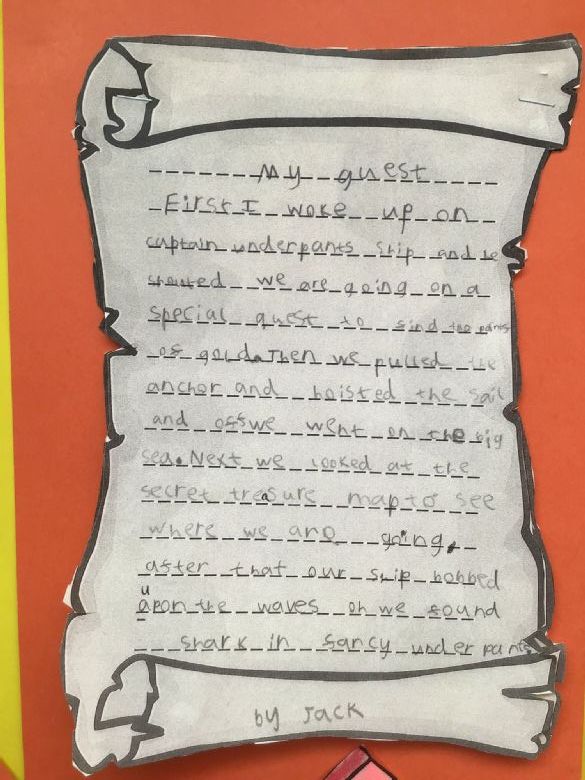 My quest
First I woke up on
captain underpants ship and he
shouted we are going on a
special quest to find the pants
of gold. Then we pulled the
anchor and hoisted the sail
and off we went on the big
sea. Next we looked at the
secret treasure map to see
where we are going.
after that our ship bobbed
upon the waves oh we found
shark in fancy under pants
by Jack